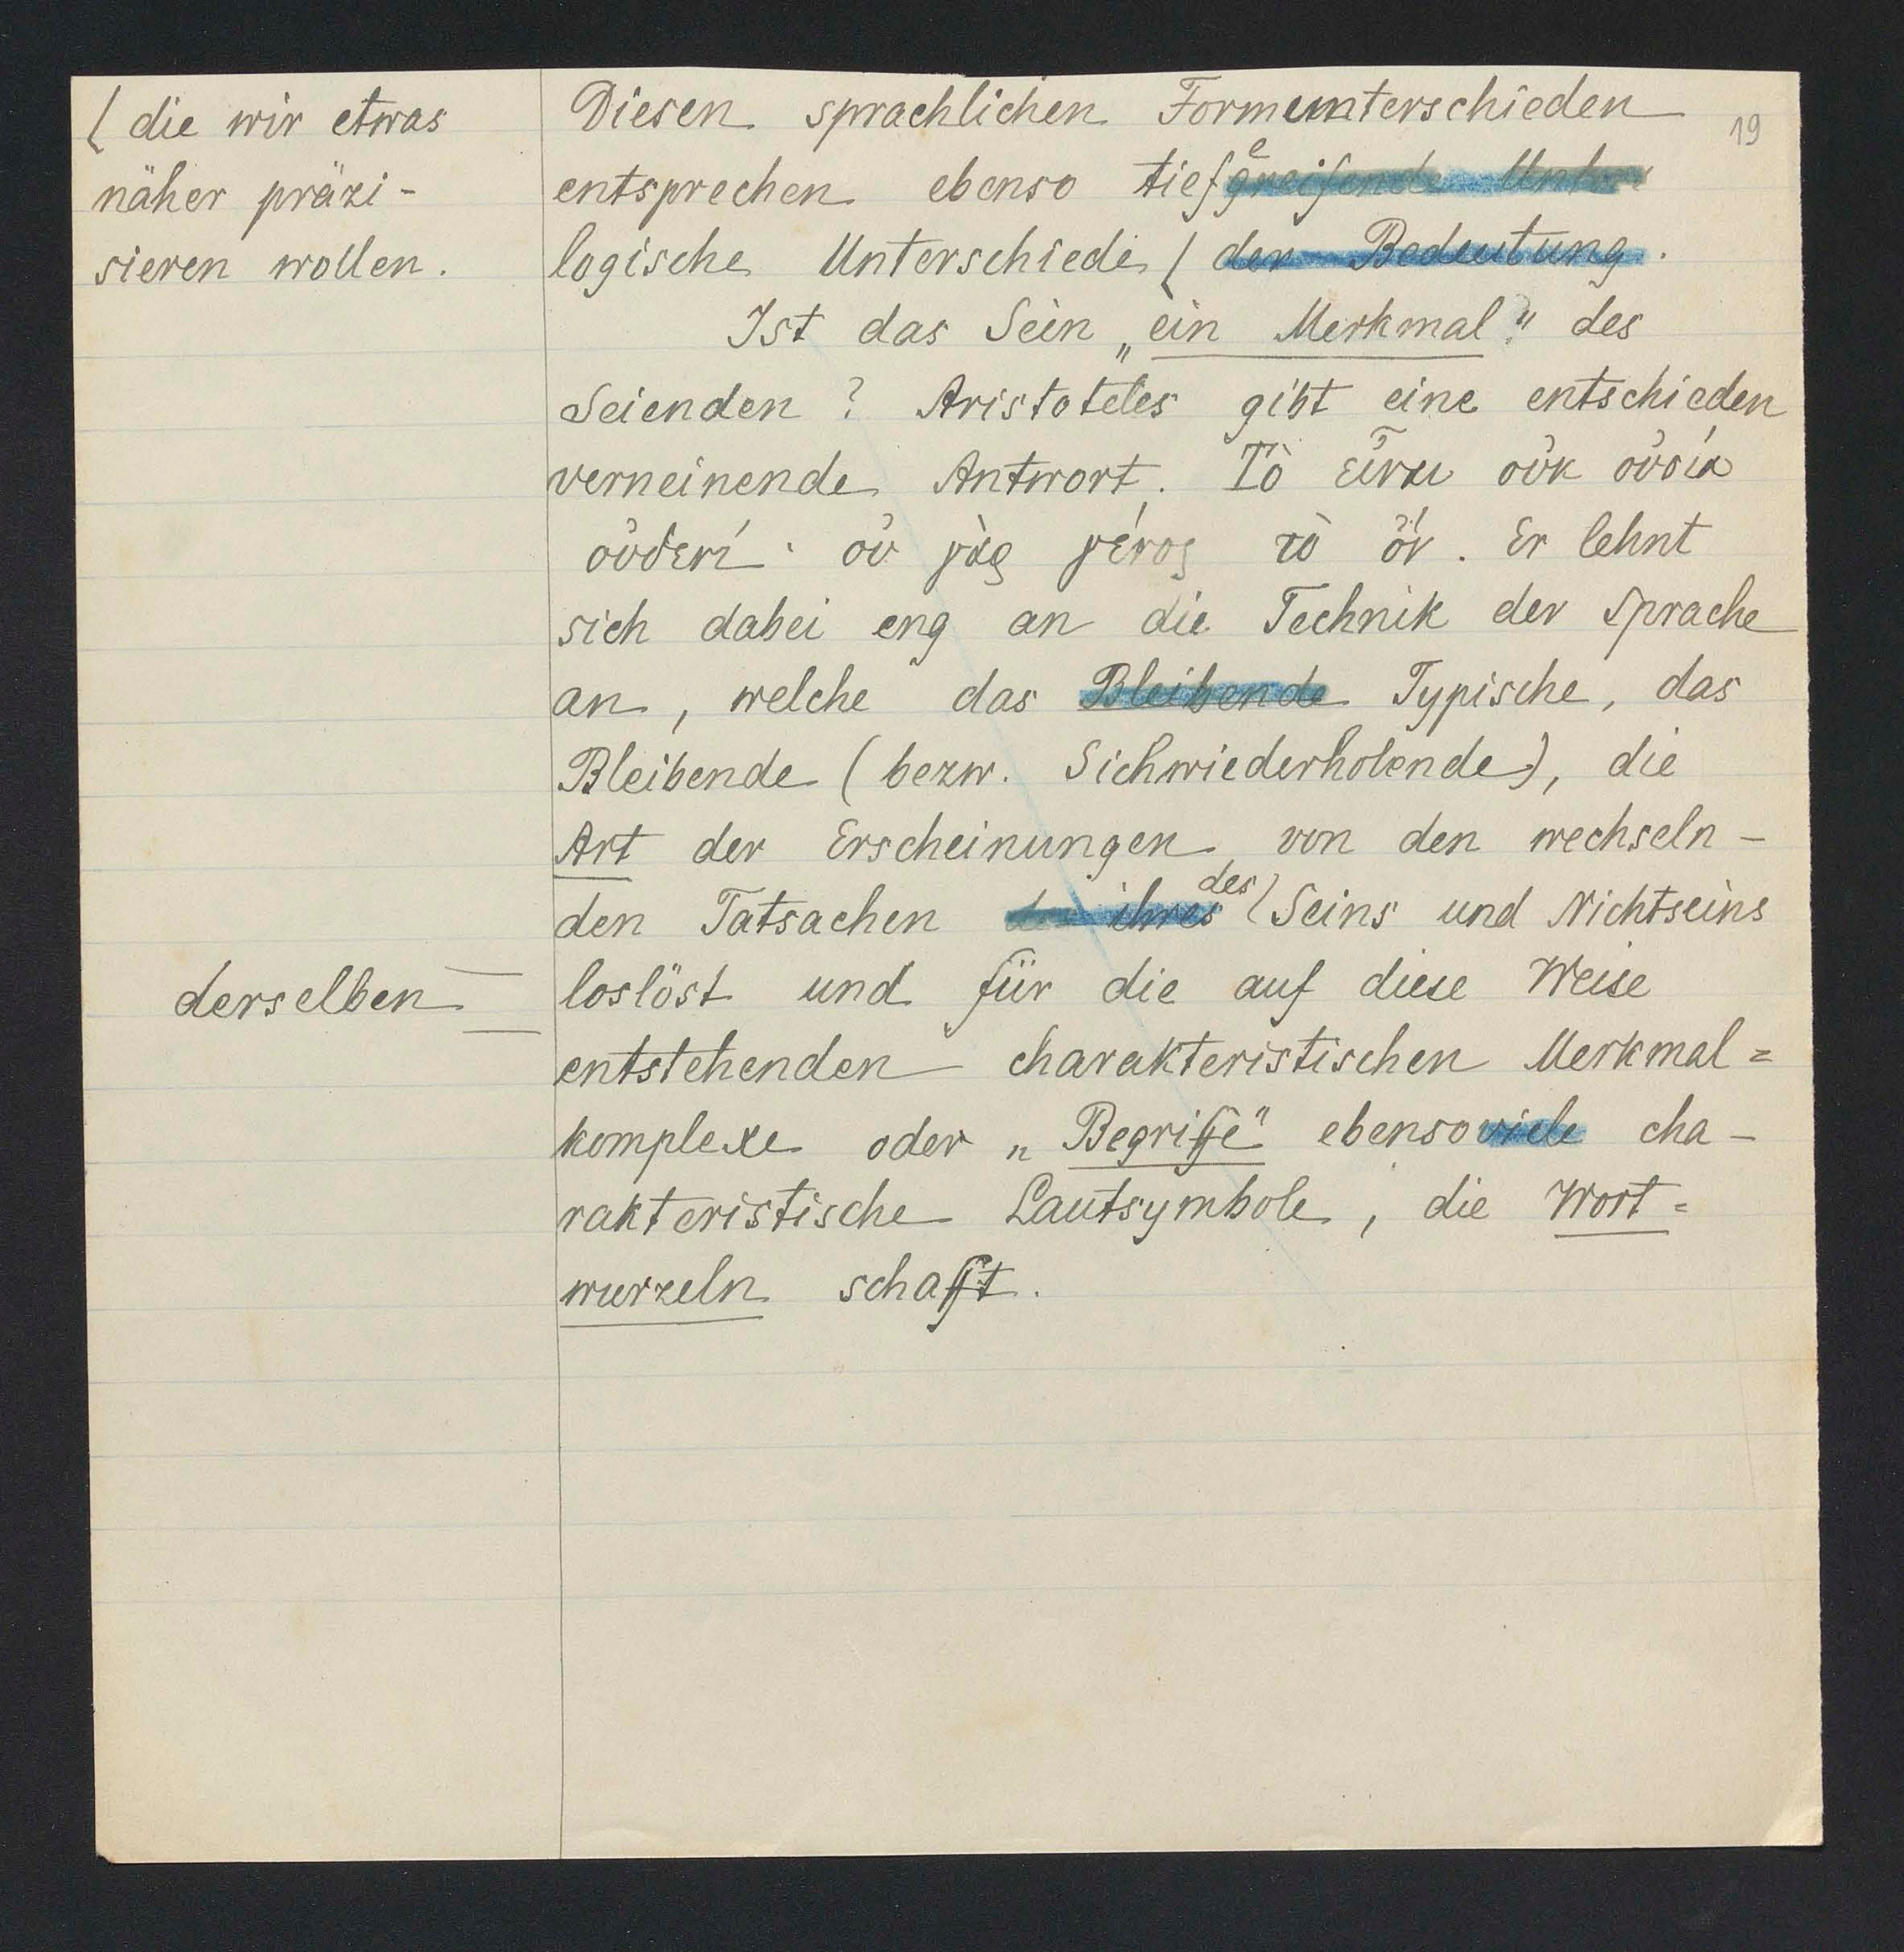 ( die wir etwas
näher präzi-
sieren wollen.
derselben
19
Diesen sprachlichen Formunterschieden
entsprechen ebenso tiefe greifende Unter
logische Unterschiede ( der Bedeutung.
Ist das Sein „ein Merkmal?" des
Seienden? Aristoteles gibt eine entschieden
verneinende Antwort. Τὸ εἶναι οὐκ οὐσία
οὐδενί· οὐ γὰρ γένος τὸ ὄν. Er lehnt
sich dabei eng an die Technik der Sprache
an, welche das Bleibende Typische, das
Bleibende (bezw. Sichwiederholende), die
Art der Erscheinungen, von den wechseln-
den Tatsachen ihres des ( Seins und Nichtseins
loslöst und für die auf diese Weise
entstehenden charakteristischen Merkmal=
komplexe oder „Begriffe" ebensoviele cha-
rakteristische Lautsymbole, die Wort=
wurzeln schafft.